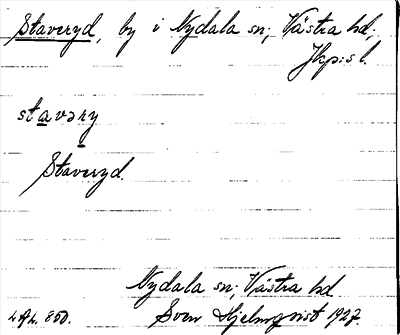 Staveryd, by i Nydala sn; Västra hd;
Jkp:s l.
stavəry
Staveryd.
Nydala sn; Västra hd
Sven Hjelmqvist 1927.